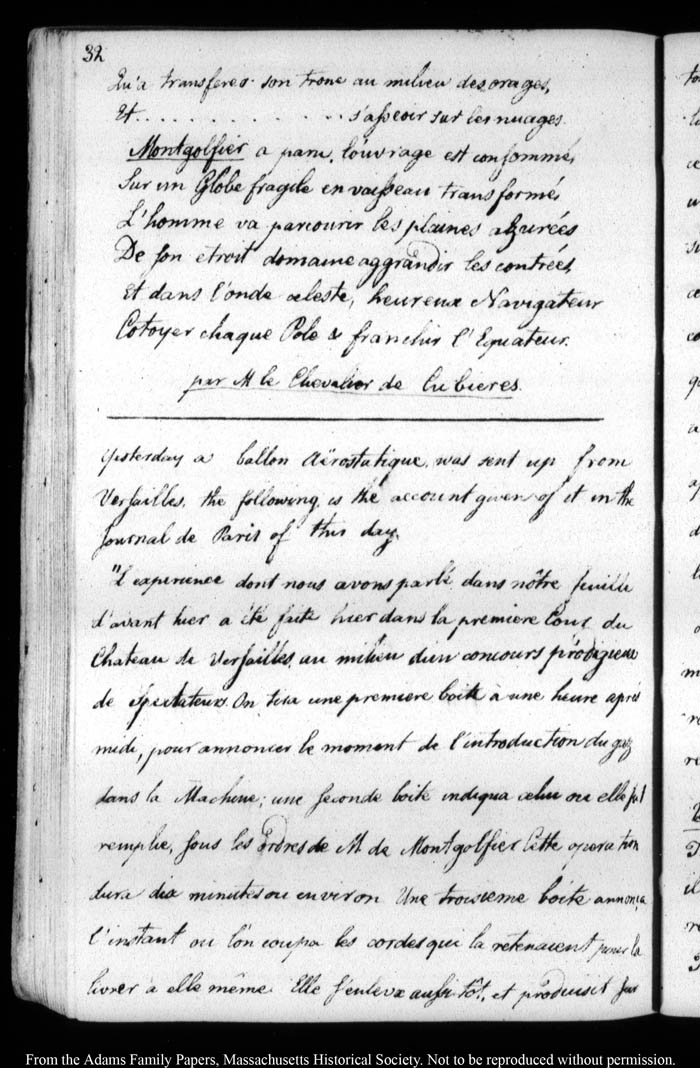 32
Qu'a transferer son trone au milieu des orages,
Et . . . . . . . . . . . . . . s'asseoir sur les nuages.
Montgolfier a paru, l'ouvrage est consommé,
Sur un Globe fragile en vaisseau transformé,
L'homme va parcourir les plaines azurées
De son etroit domaine aggrandir les contrées,
Et dans l'onde celeste, heureux Navigateur
Cotoyer chaque Pole & franchir l'Equateur.
par M le Chevalier de Cubieres.
Yesterday a ballon Aërostatique, was sent up from
Versailles, the following, is the account given of it in the
Journal de Paris of this day.
"L'experience dont nous avons parlé dans nôtre feuille
d'avant hier a été faite hier dans la premiere Cour du
Chateau de Versailles, au milieu d'un concours prodigieux
de Spectateurs. On tira une premiere boite à une heure après
midi, pour annoncer le moment de l'introduction du gaz
dans la Machine; une seconde boite indiqua celui ou elle fut
remplie, sous les ordres de M de Montgolfier Cette operation
dura dix minutes ou environ Une troisieme boite annonça
l'instant ou l'on coupa les cordes qui la retenaient pour la
livrer à elle même. Elle s'enleva aussi-tôt, et produisit sur
From the Adams Family Papers, Massachusetts Historical Society. Not to be reproduced without permission.